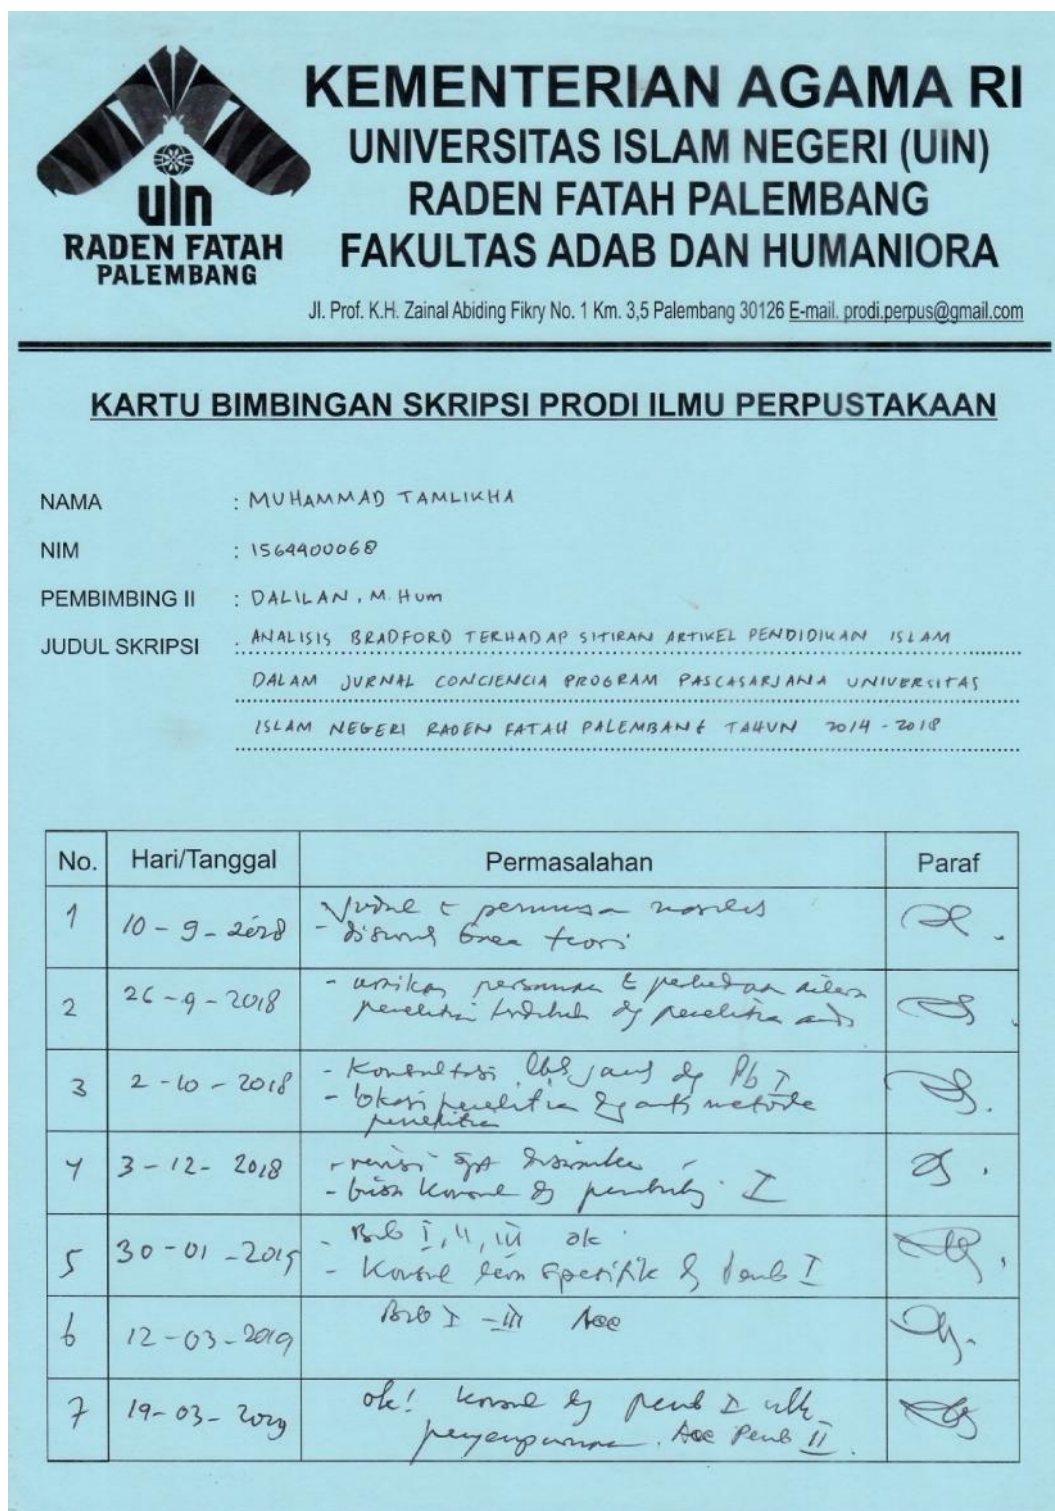 uin
RADEN FATAH
PALEMBANG
KEMENTERIAN AGAMA RI
UNIVERSITAS ISLAM NEGERI (UIN)
RADEN FATAH PALEMBANG
FAKULTAS ADAB DAN HUMANIORA
Jl. Prof. K.H. Zainal Abiding Fikry No. 1 Km. 3,5 Palembang 30126 E-mail. prodi.perpus@gmail.com
KARTU BIMBINGAN SKRIPSI PRODI ILMU PERPUSTAKAAN
NAMA : MUHAMMAD TAMLIKHA
NIM : 1564400068
PEMBIMBING II : DALILAN, M.Hum
JUDUL SKRIPSI : ANALISIS BRADFORD TERHADAP SITIRAN ARTIKEL PENDIDIKAN ISLAM
DALAM JURNAL CONCIENCIA PROGRAM PASCASARJANA UNIVERSITAS
ISLAM NEGERI RADEN FATAH PALEMBANG TAHUN 2014 - 2018
No. Hari/Tanggal Permasalahan Paraf
1 10 - 9 - 2018
teori
2 26 - 9 - 2018 - uraikan
penelitian dg penelitian
3 2 - 10 - 2018 - Konsultasi dg Pb I
- lokasi penelitian metode
penelitian
4 3 - 12 - 2018 - revisi
- bisa konsul dg I
5 30 - 01 - 2019 - Bab I, II, III ok
- Konsul spesifik dg Pemb I
6 12 - 03 - 2019 Bab I - III Acc
7 19 - 03 - 2019 ok! konsul dg pemb I utk
penyempurnaan. Acc Pemb II.